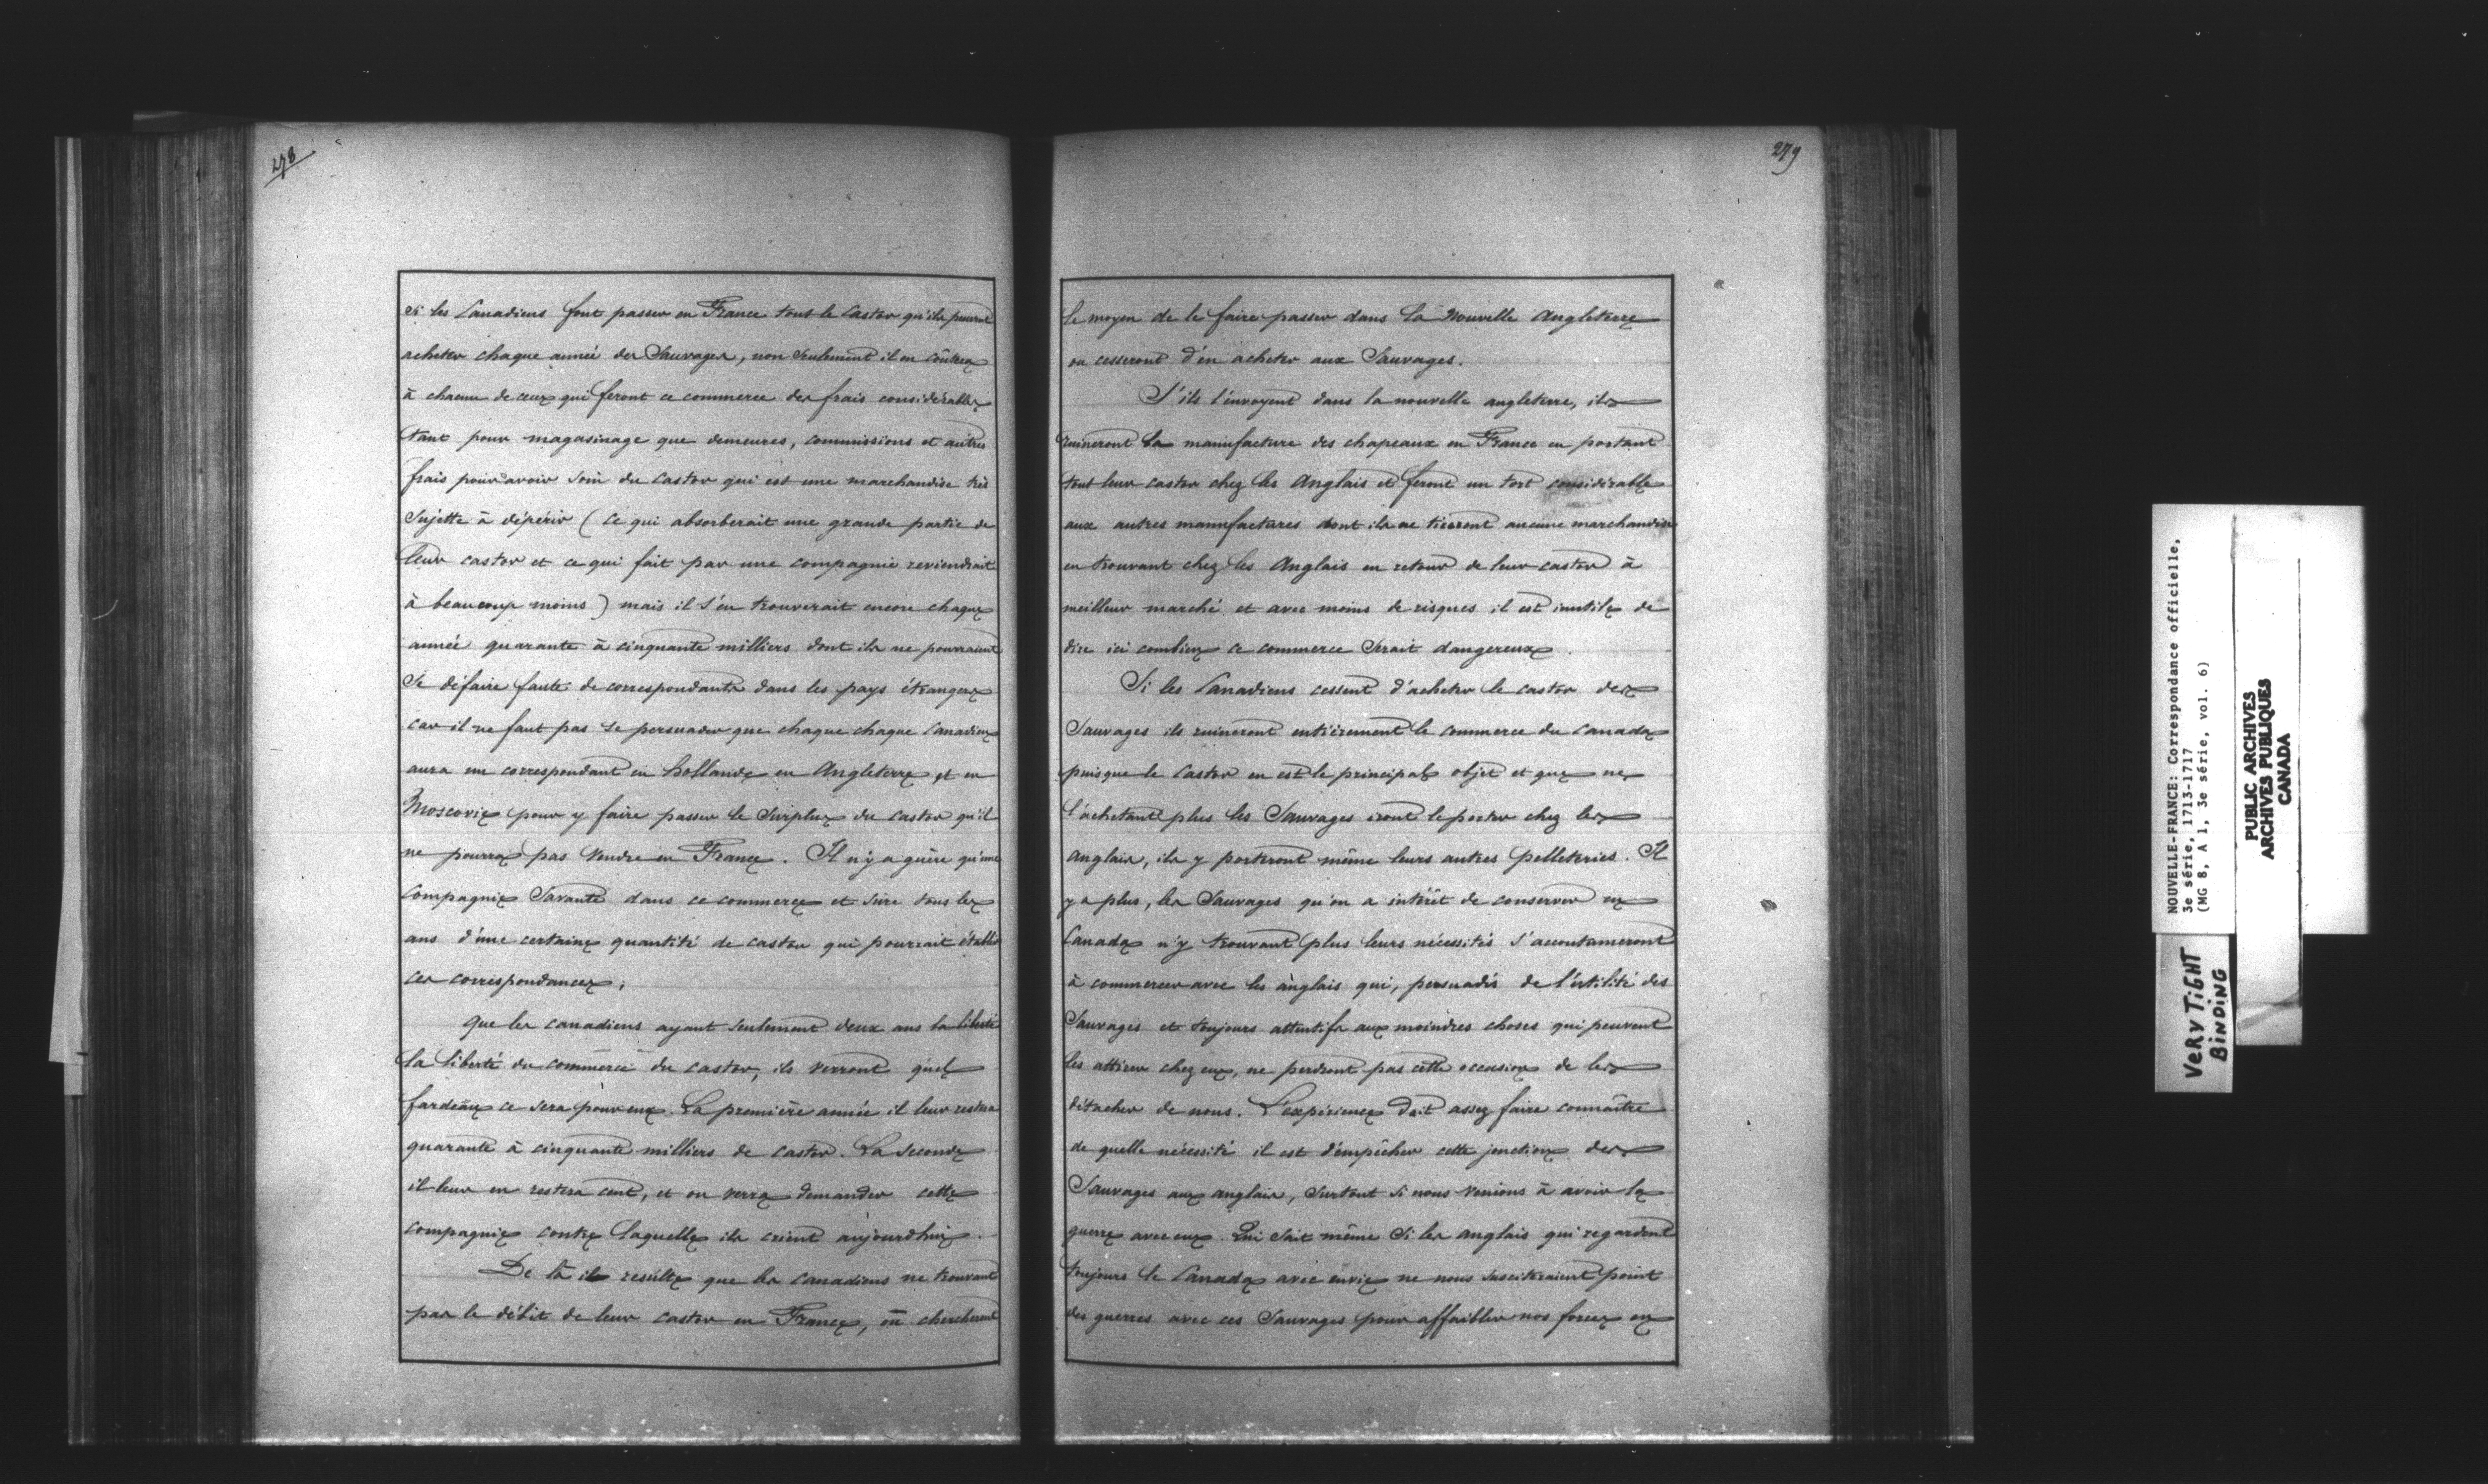 278
si les Canadiens font passer en France tout le Castor qu'ils peuvent
acheter chaque année des Sauvages, non seulement il en coûtera
à chacun de ceux qui feront ce commerce des frais considérables
tant pour magasinage que demeures, commissions et autres
frais pour avoir soin du Castor qui est une marchandise très
sujette à dépérir (ce qui absorberait une grande partie de
leur castor et ce qui fait par une compagnie reviendrait
à beaucoup moins) mais il s'en trouverait encore chaque
année quarante à cinquante milliers dont ils ne pourraient
se défaire faute de correspondants dans les pays étrangers
car il ne faut pas se persuader que chaque chaque Canadien
aura un correspondant en hollande en Angleterre et en
Moscovie pour y faire passer le Surplus du castor qu'il
ne pourra pas vendre en France. Il n'y a guère qu'une
Compagnie Savante dans ce commerce et sûre tous les
ans d'une certaine quantité de castor qui pourrait établir
ces correspondances;
Que les canadiens ayant seulement deux ans la liberté
la liberté du commerce du castor, ils verront quel
fardeau ce sera pour eux. La première année il leur restera
quarante à cinquante milliers de castor. La Seconde
il leur en restera cent, et on verra demander cette
compagnie contre laquelle ils crient aujourdhui.
De là il résulte que les Canadiens ne trouvant
pas le débit de leur castor en France, où chercheront
279
le moyen de le faire passer dans la Nouvelle Angleterre
ou cesseront d'en acheter aux Sauvages.
S'ils l'envoyent dans la nouvelle angleterre, ils
ruineront la manufacture des chapeaux en France en portant
tout leur castor chez les Anglais et feront un tort considérable
aux autres manufactures dont ils ne tireront aucune marchandise
en trouvant chez les Anglais en retour de leur castor à
meilleur marché et avec moins de risques il est inutile de
dire ici combien ce commerce serait dangereux.
Si les Canadiens cessent d'acheter le castor des
Sauvages ils ruineront entièrement le commerce du Canada
puisque le Castor en est le principal objet et que ne
l'achetant plus les Sauvages iront le porter chez les
anglais, ils y porteront même leurs autres pelleteries. Il
y a plus, les Sauvages qu'on a intérêt de conserver en
Canada n'y trouvant plus leurs nécessités s'accoutumeront
à commercer avec les anglais qui, persuadés de l'utilité des
Sauvages et toujours attentifs aux moindres choses qui peuvent
les attirer chez eux, ne perdront pas cette occasion de les
détacher de nous. L'expérience doit assez faire connaître
de quelle nécessité il est d'empêcher cette jonction des
Sauvages aux anglais, surtout si nous venions à avoir la
guerre avec eux. Qui sait même si les anglais qui regardent
toujours le Canada avec envie ne nous susciteraient point
des guerres avec ces Sauvages pour affaiblir nos forces en
NOUVELLE-FRANCE: Correspondance officielle,
3e série, 1713-1717
(MG 8, A 1, 3e série, vol. 6)
PUBLIC ARCHIVES
ARCHIVES PUBLIQUES
CANADA
VERY TIGHT
BINDING